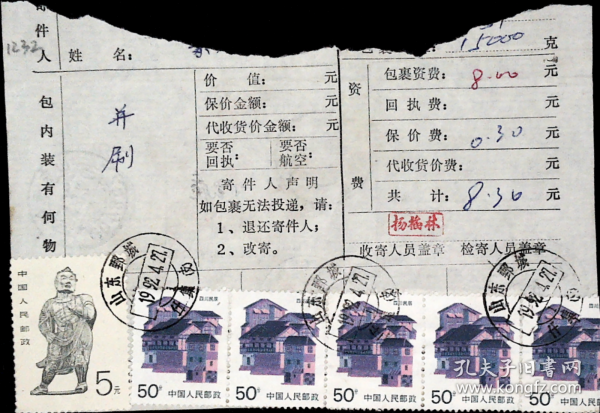 1232
寄件人
姓 名：
15000 克
包内装有何物
并刷
价 值： 元
保价金额： 元
代收货价金额： 元
要否回执： 要否航空：
寄 件 人 声 明
如包裹无法投递，请：
1、退还寄件人；
2、改寄。
资费
包裹资费： 8.00 元
回执费： 元
保 价 费： 0.30 元
代收货价费： 元
共 计： 8.30 元
杨福林
收寄人员盖章 检寄人员盖章
中国人民邮政
5元
山东鄄城
1992.4.27.
山东鄄城
1992.4.27.
山东鄄城
1992.4.27.
台湾民居
50分 中国人民邮政
50分 中国人民邮政
50分 中国人民邮政
50分 中国人民邮政
50分 中国人民邮政
孔夫子旧书网
www.kongfz.com